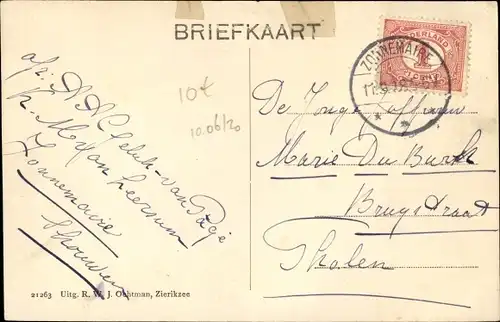 BRIEFKAART
NEDERLAND
ZONNEMAIRE
10€
10.06/20
De Jonge Juffrouw
Marie Du Burck
Brugstraat
Tholen
afz. A A
v. Page
Zonnemaire
Schouwen
21263 Uitg. R. W. J. Ochtman, Zierikzee